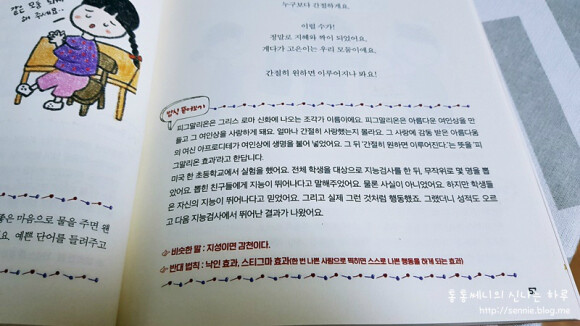 같은 모둠 되게
해 주세요..
누구보다 간절하게요.
이럴 수가!
정말로 지혜와 짝이 되었어요.
게다가 고은이는 우리 모둠이에요.
간절히 원하면 이루어지나 봐요!
법칙 풀어보기
피그말리온은 그리스 로마 신화에 나오는 조각가 이름이에요. 피그말리온은 아름다운 여인상을 만
들고 그 여인상을 사랑하게 돼요. 얼마나 간절히 사랑했는지 몰라요. 그 사랑에 감동 받은 아름다움
의 여신 아프로디테가 여인상에 생명을 불어 넣었어요. 그 뒤 '간절히 원하면 이루어진다'는 뜻을 '피
그말리온 효과'라고 한답니다.
미국 한 초등학교에서 실험을 했어요. 전체 학생을 대상으로 지능검사를 한 뒤, 무작위로 몇 명을 뽑
았어요. 뽑힌 친구들에게 지능이 뛰어나다고 말해주었어요. 물론 사실이 아니었어요. 하지만 학생들
은 자신의 지능이 뛰어나다고 믿었어요. 그리고 실제 그런 것처럼 행동했죠. 그랬더니 성적도 오르
고 다음 지능검사에서 뛰어난 결과가 나왔어요.
비슷한 말 : 지성이면 감천이다.
반대 법칙 : 낙인 효과, 스티그마 효과(한 번 나쁜 사람으로 찍히면 스스로 나쁜 행동을 하게 되는 효과)
좋은 마음으로 물을 주면 왠
요. 예쁜 단어를 들려주고
57
통통쎄니의 신나는 하루
http://sennie.blog.me